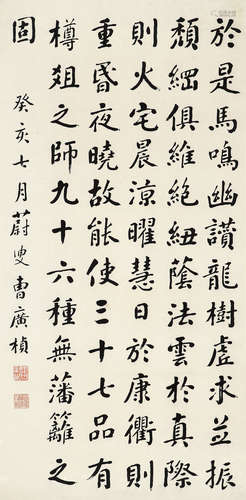 於是馬鳴幽讚龍樹虛求並振
頹綱俱維絕紐蔭法雲於真際
則火宅晨涼曜慧日於康衢則
重昏夜曉故能使三十七品有
樽俎之師九十六種無藩籬之
固
癸亥七月蔚叟曹廣楨